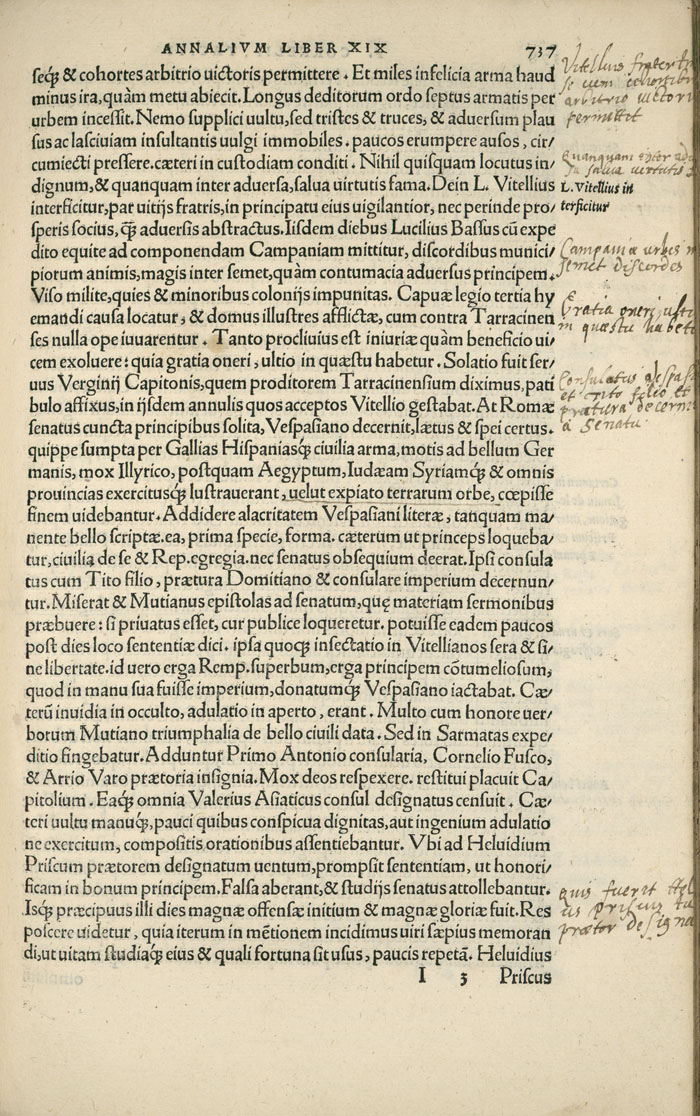 ANNALIVM LIBER XIX 737
seq́ꝫ & cohortes arbitrio uictoris permittere. Et miles infelicia arma haud
minus ira, quàm metu abiecit. Longus deditorum ordo septus armatis per
urbem incessit. Nemo supplici uultu, sed tristes & truces, & aduersum plau
sus ac lasciuiam insultantis uulgi immobiles. paucos erumpere ausos, cir/
cumiecti pressere. cæteri in custodiam conditi. Nihil quisquam locutus in/
dignum, & quanquam inter aduersa, salua uirtutis fama. Dein L. Vitellius
interficitur, par uitijs fratris, in principatu eius uigilantior, nec perinde pro/
speris socius, q̃ꝫ aduersis abstractus. Iisdem diebus Lucilius Bassus cũ expe
dito equite ad componendam Campaniam mittitur, discordibus munici/
piorum animis, magis inter semet, quàm contumacia aduersus principem.
Viso milite, quies & minoribus colonijs impunitas. Capuæ legio tertia hy
emandi causa locatur, & domus illustres afflictæ, cum contra Tarracinen
ses nulla ope iuuarentur. Tanto procliuius est iniuriæ quàm beneficio ui/
cem exoluere: quia gratia oneri, ultio in quæstu habetur. Solatio fuit ser/
uus Verginij Capitonis, quem proditorem Tarracinensium diximus, pati
bulo affixus, in ijsdem annulis quos acceptos Vitellio gestabat. At Romæ
senatus cuncta principibus solita, Vespasiano decernit, lætus & spei certus.
quippe sumpta per Gallias Hispaniasq́ꝫ ciuilia arma, motis ad bellum Ger
manis, mox Illyrico, postquam Aegyptum, Iudæam Syriamq́ꝫ & omnis
prouincias exercitusq́ꝫ lustrauerant, uelut expiato terrarum orbe, cœpisse
finem uidebantur. Addidere alacritatem Vespasiani literæ, tanquam ma/
nente bello scriptæ. ea, prima specie, forma. cæterum ut princeps loqueba/
tur, ciuilia de se & Rep. egregia. nec senatus obsequium deerat. Ipsi consula
tus cum Tito filio, prætura Domitiano & consulare imperium decernun/
tur. Miserat & Mutianus epistolas ad senatum, quę materiam sermonibus
præbuere: si priuatus esset, cur publice loqueretur. potuisse eadem paucos
post dies loco sententiæ dici. ipsa quoq́ꝫ insectatio in Vitellianos sera & si/
ne libertate. id uero erga Remp. superbum, erga principem cõtumeliosum,
quod in manu sua fuisse imperium, donatumq́ꝫ Vespasiano iactabat. Cæ/
terũ inuidia in occulto, adulatio in aperto, erant. Multo cum honore uer/
borum Mutiano triumphalia de bello ciuili data. Sed in Sarmatas expe/
ditio fingebatur. Adduntur Primo Antonio consularia, Cornelio Fusco,
& Arrio Varo prætoria insignia. Mox deos respexere. restitui placuit Ca/
pitolium. Eaq́ꝫ omnia Valerius Asiaticus consul designatus censuit. Cæ/
teri uultu manuq́ꝫ, pauci quibus conspicua dignitas, aut ingenium adulatio
ne exercitum, compositis orationibus assentiebantur. Vbi ad Heluidium
Priscum prætorem designatum uentum, prompsit sententiam, ut honori/
ficam in bonum principem. Falsa aberant, & studijs senatus attollebantur.
Isq́ꝫ præcipuus illi dies magnæ offensæ initium & magnæ gloriæ fuit. Res
poscere uidetur, quia iterum in mẽtionem incidimus uiri sæpius memoran
di, ut uitam studiaq́ꝫ eius & quali fortuna sit usus, paucis repetã. Heluidius
I 3 Priscus
Vitellius frater
se cum cohortibu
arbitrio uictori
permittit
Quanquam inter ad
salua uirtutis
L. Vitellius in
terficitur
Campaniæ urbes
semet discordes
Gratia oneri, ulti
in quæstu habet
Consulatus Vespas
et Tito filio et
prætura decerni
a Senatu.
quis fuerit Hel
us Priscus
prætor designa